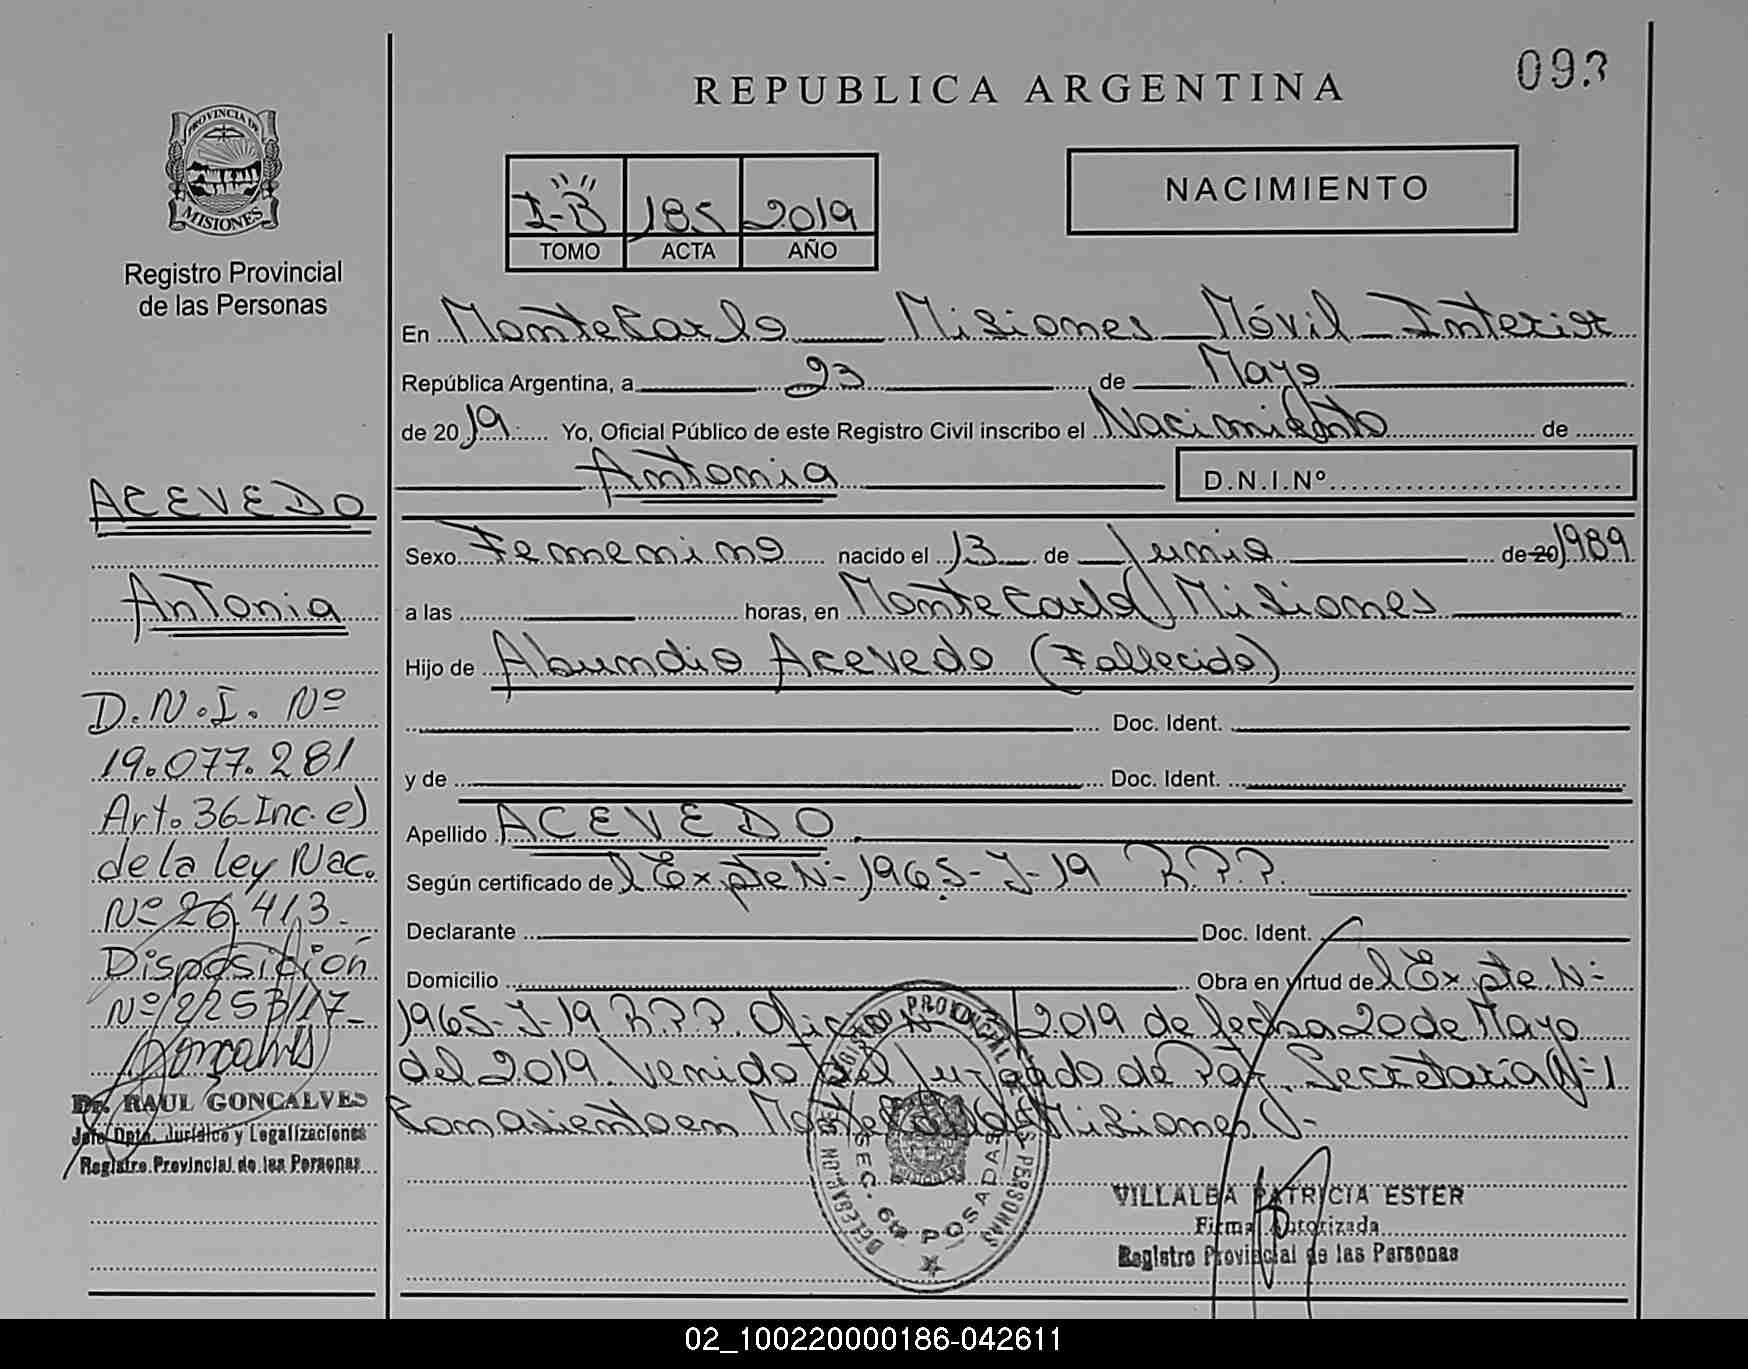 093
REPUBLICA ARGENTINA
PROVINCIA DE
MISIONES
Registro Provincial
de las Personas
I-B 185 2019
TOMO ACTA AÑO
NACIMIENTO
En Montecarlo Misiones Móvil Interior
República Argentina, a 23 de Mayo
de 2019 Yo, Oficial Público de este Registro Civil inscribo el Nacimiento de
Antonia D.N.I.Nº
Sexo Femenino nacido el 13 de Junio de 20 1989
a las horas, en Montecarlo Misiones
Hijo de Abundio Acevedo (Fallecido)
Doc. Ident.
y de Doc. Ident.
Apellido ACEVEDO
Según certificado del Expte Nº 1965-J-19 R.P.P.
Declarante Doc. Ident.
Domicilio Obra en virtud del Expte. Nº
1965-J-19 R.P.P. Oficio Nº 2019 de fecha 20 de Mayo
del 2019. Venido del Juzgado de Paz. Secretaría Nº 1
Con asiento en Montecarlo Misiones.
ACEVEDO
Antonia
D.N.I. Nº
19.077.281
Art. 36 Inc. e)
de la ley Nac.
Nº 26.413.
Disposición
Nº 2253/17
Dr. RAUL GONCALVES
Jefe Dpto. Jurídico y Legalizaciones
Registro Provincial de las Personas
REGISTRO PROVINCIAL DE LAS PERSONAS
SEC. 6ª POSADAS
VILLALBA PATRICIA ESTER
Firma Autorizada
Registro Provincial de las Personas
02_100220000186-042611